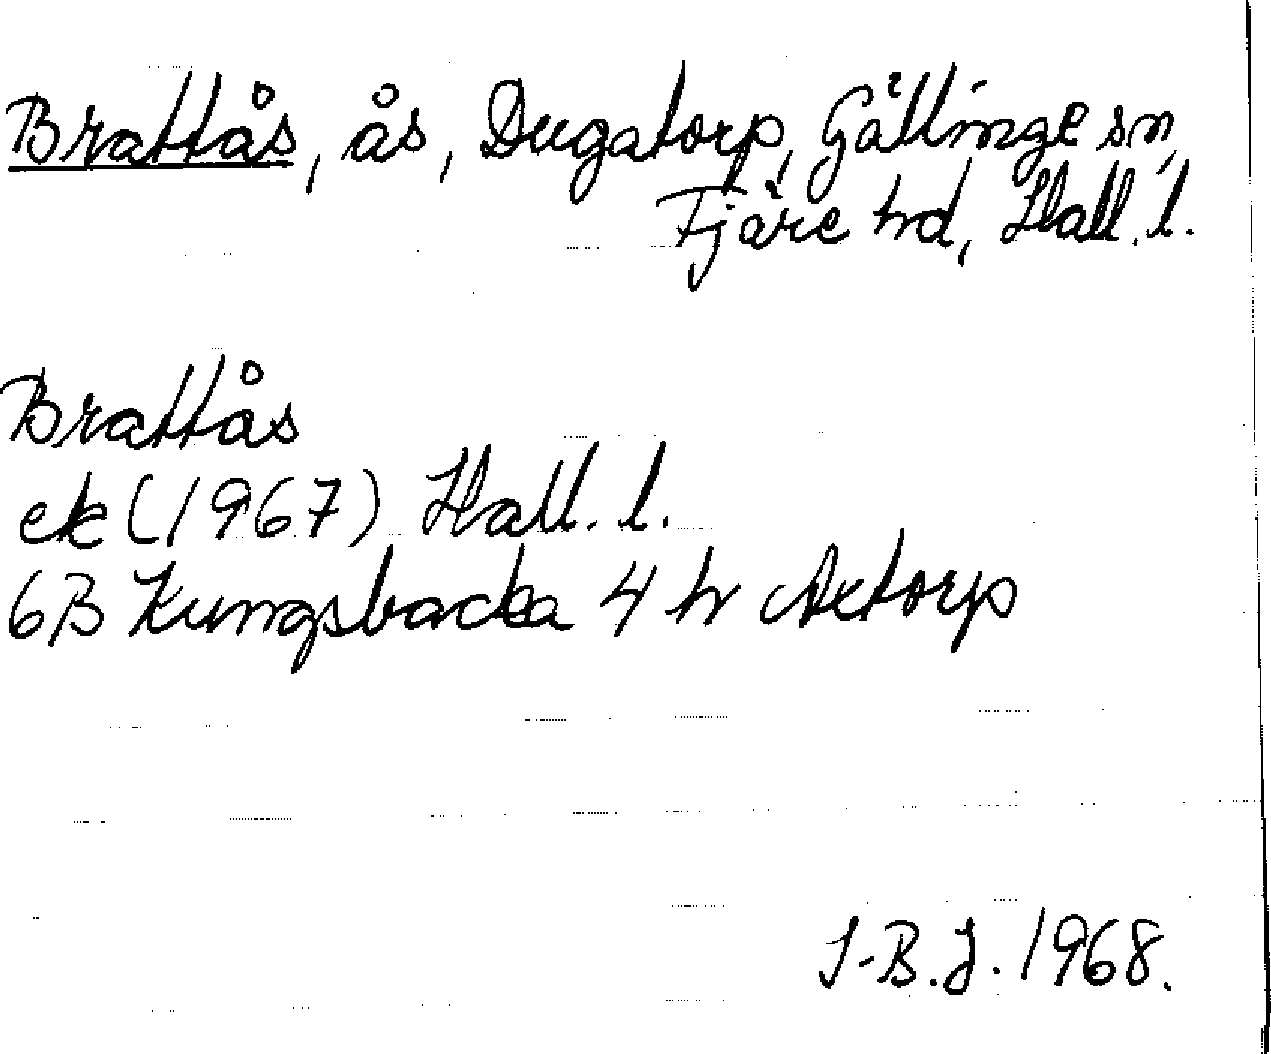 Brattås, ås, Dugatorp, Gällinge sn,
Fjäre hd, Hall. l.
Brattås
ek (1967) Hall. l.
6B Kungsbacka 4 h Axtorp
I-B.J. 1968.